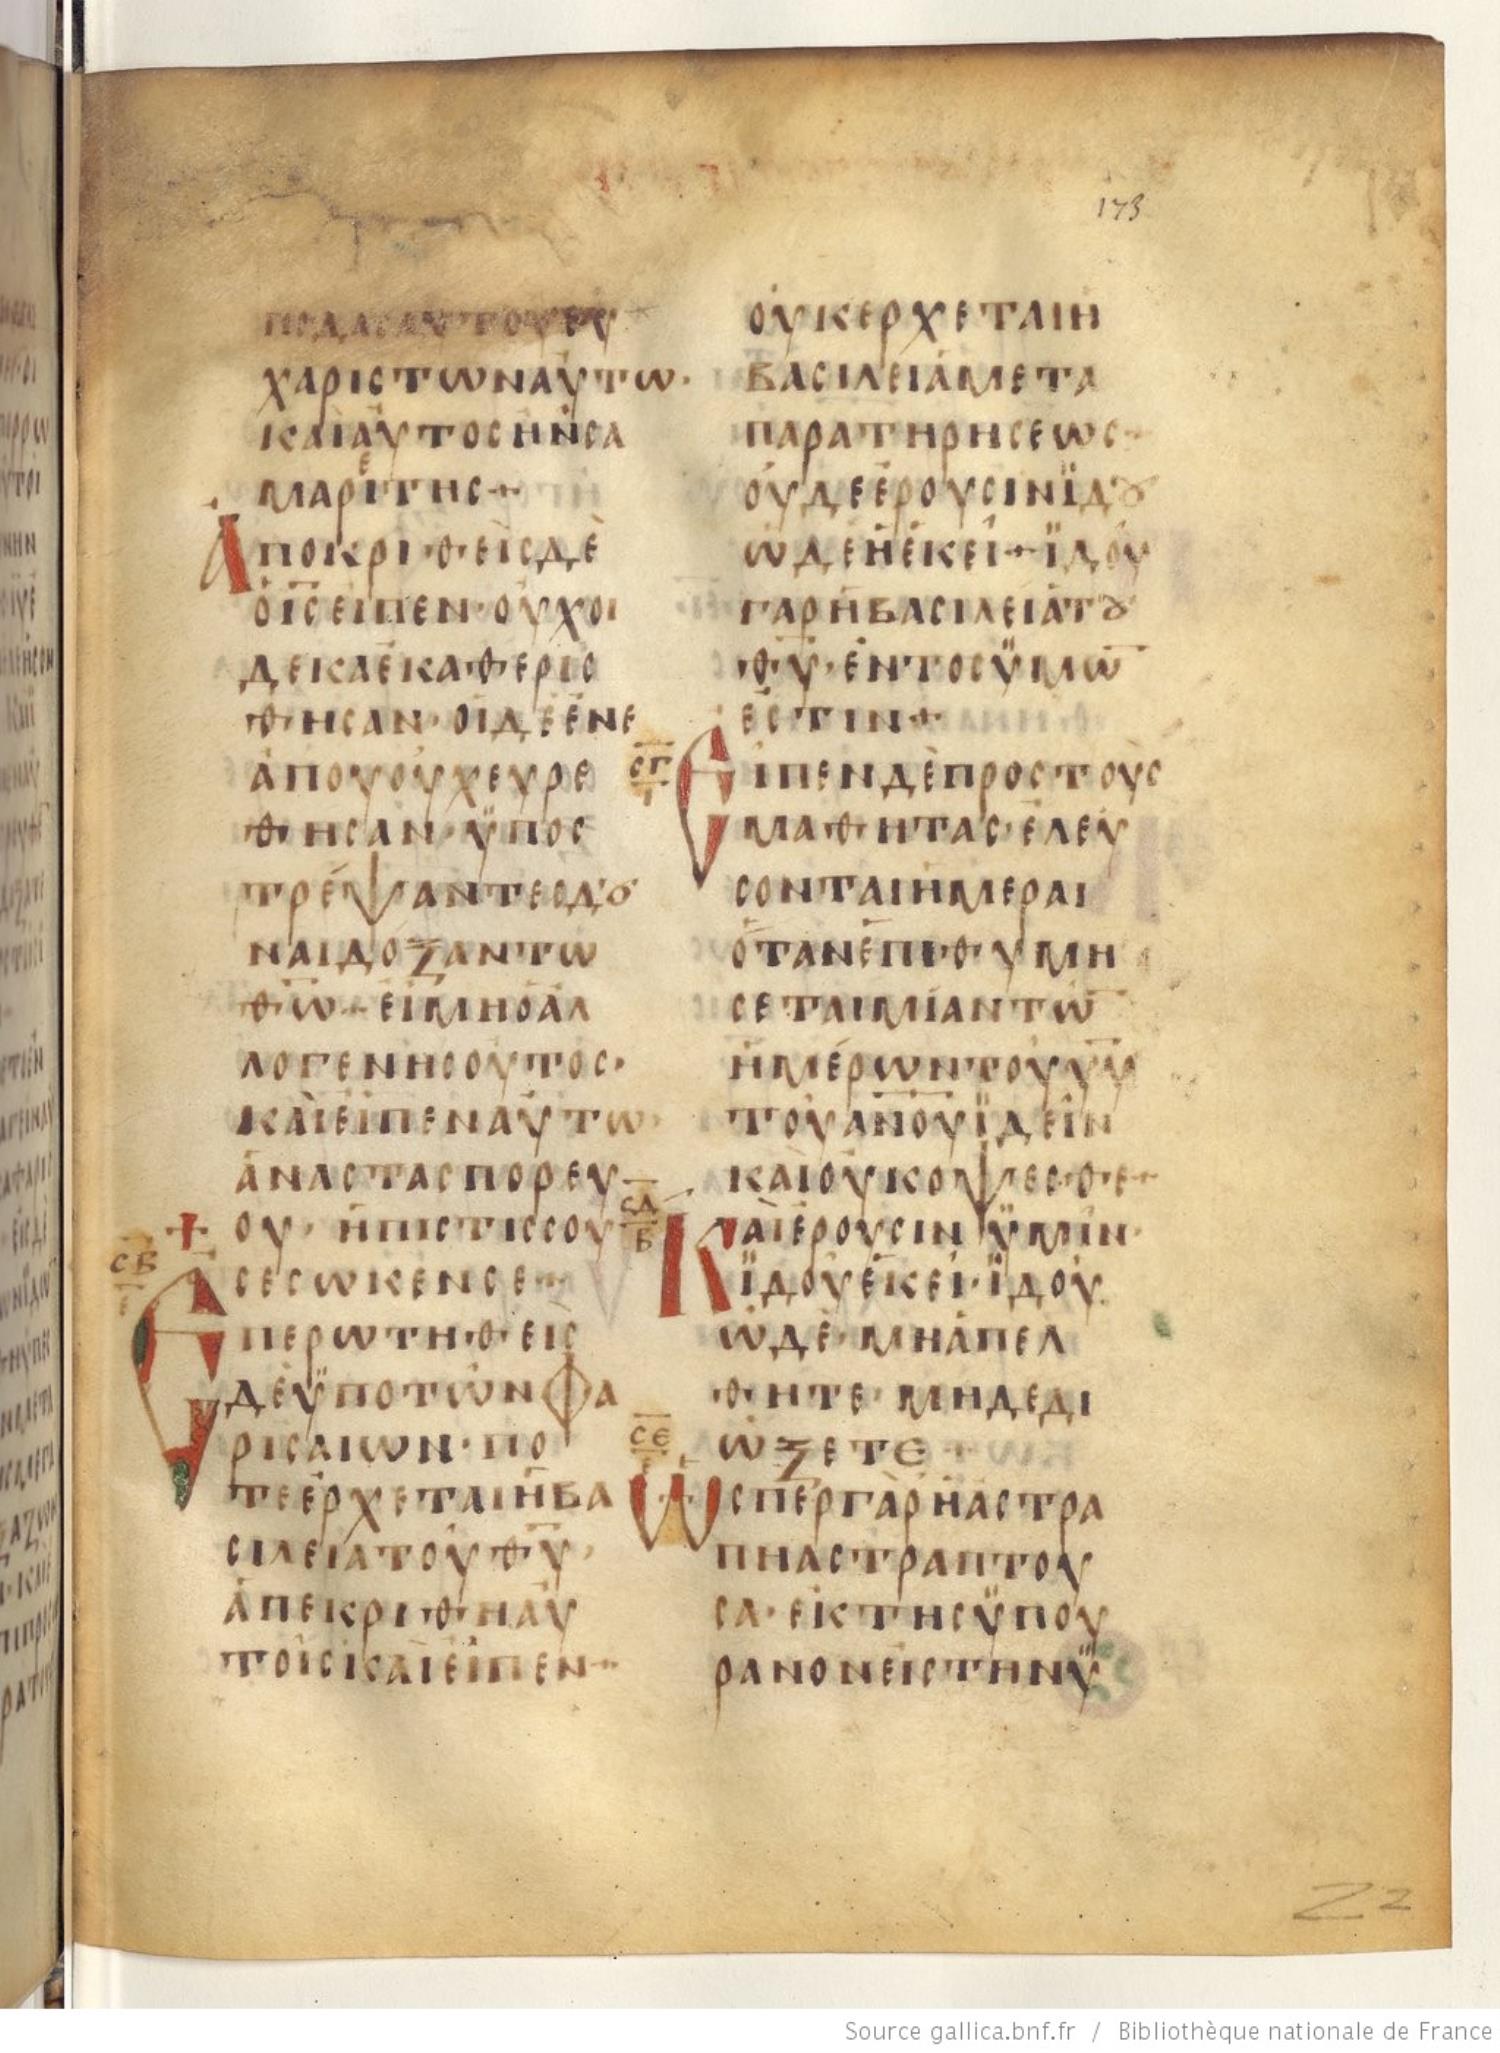 173
ΠΟΔΑΣΑΥΤΟΥΕΥ
ΧΑΡΙΣΤΩΝΑΥΤΩ·
ΚΑΙΑΥΤΟΣΗΝΣΑ
ΜΑΡΙΤΗΣ+
ΑΠΟΚΡΙΘΕΙΣΔΕ
ΟΙ̅Σ̅ΕΙΠΕΝ·ΟΥΧΟΙ
ΔΕΚΑΕΚΑΘΕΡΙΣ
ΘΗΣΑΝ·ΟΙΔΕΕΝΕ
ΑΠΟΥΟΥΧΕΥΡΕ
ΘΗΣΑΝ·ΫΠΟΣ
ΤΡΕΨΑΝΤΕΣΔȢ
ΝΑΙΔΟΞΑΝΤΩ
Θ̅Ω̅+ΕΙΜΗΟΑΛ
ΛΟΓΕΝΗΣΟΥΤΟΣ·
ΚΑΙΕΙΠΕΝΑΥΤΩ·
ΑΝΑΣΤΑΣΠΟΡΕΥ
ΟΥ·ΗΠΙΣΤΙΣΣΟΥ
ΣΕΣΩΚΕΝΣΕ+
Σ̅Β̅
ΕΠΕΡΩΤΗΘΕΙΣ
ΔΕΫΠΟΤΩΝΦΑ
ΡΙΣΑΙΩΝ·ΠΟ
ΤΕΕΡΧΕΤΑΙΗΒΑ
ΣΙΛΕΙΑΤΟΥΘ̅Υ̅·
ΑΠΕΚΡΙΘΗΑΥ
ΤΟΙΣΚΑΙΕΙΠΕΝ+
ΟΥΚΕΡΧΕΤΑΙΗ
ΒΑΣΙΛΕΙΑΜΕΤΑ
ΠΑΡΑΤΗΡΗΣΕΩΣ+
ΟΥΔΕΕΡΟΥΣΙΝΪΔȢ
ΩΔΕΗΕΚΕΙ+ΪΔΟΥ
ΓΑΡΗΒΑΣΙΛΕΙΑΤȢ
Θ̅Υ̅·ΕΝΤΟΣΫΜΩ̅
ΕΣΤΙΝ+
Σ̅Γ̅
ΕΙΠΕΝΔΕΠΡΟΣΤΟΥΣ
ΜΑΘΗΤΑΣ·ΕΛΕΥ
ΣΟΝΤΑΙΗΜΕΡΑΙ
ΟΤΑΝΕΠΙΘΥΜΗ
ΣΕΤΑΙΜΙΑΝΤΩ̅
ΗΜΕΡΩΝΤΟΥΥ̅Υ̅
ΤΟΥΑ̅Ν̅Ο̅Υ̅ΪΔΕΙΝ
ΚΑΙΟΥΚΟΨΕΣΘΕ+
Σ̅Δ̅
Β
ΚΑΙΕΡΟΥΣΙΝΫΜΙΝ·
ΪΔΟΥΕΚΕΙ·ΪΔΟΥ
ΩΔΕ·ΜΗΑΠΕΛ
ΘΗΤΕ·ΜΗΔΕΔΙ
ΩΞΕΤΕ+
Σ̅Ε̅
ΩΣΠΕΡΓΑΡΗΑΣΤΡΑ
ΠΗΑΣΤΡΑΠΤΟΥ
ΣΑ·ΕΚΤΗΣΫΠΟΥ
ΡΑΝΟΝΕΙΣΤΗΝΫ
Z2
Source gallica.bnf.fr / Bibliothèque nationale de France